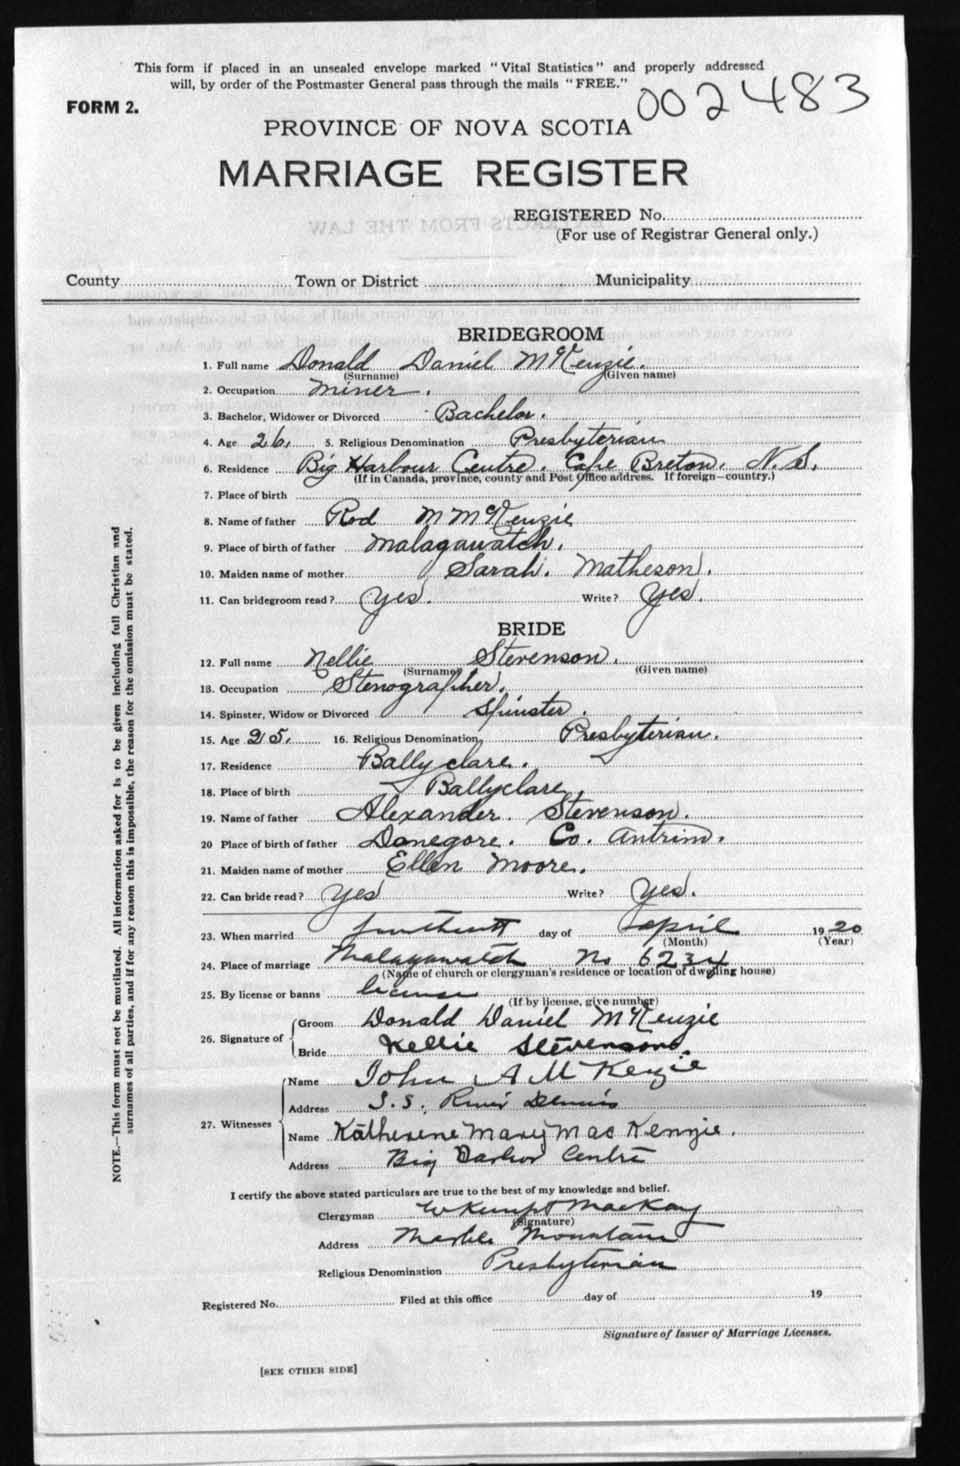 This form if placed in an unsealed envelope marked "Vital Statistics" and properly addressed
will, by order of the Postmaster General pass through the mails "FREE."
002483
FORM 2.
PROVINCE OF NOVA SCOTIA
MARRIAGE REGISTER
REGISTERED No.
(For use of Registrar General only.)
County Town or District Municipality
BRIDEGROOM
1. Full name Donald Daniel McKenzie.
(Surname) (Given name)
2. Occupation Miner.
3. Bachelor, Widower or Divorced Bachelor.
4. Age 26. 5. Religious Denomination Presbyterian
6. Residence Big Harbour Centre. Cape Breton. N.S.
(If in Canada, province, county and Post Office address. If foreign—country.)
7. Place of birth
8. Name of father Rod M McKenzie
9. Place of birth of father Malagawatch.
10. Maiden name of mother Sarah. Matheson.
11. Can bridegroom read? Yes. Write? Yes.
BRIDE
12. Full name Nellie Stevenson.
(Surname) (Given name)
13. Occupation Stenographer.
14. Spinster, Widow or Divorced Spinster.
15. Age 25. 16. Religious Denomination Presbyterian.
17. Residence Ballyclare.
18. Place of birth Ballyclare.
19. Name of father Alexander Stevenson.
20 Place of birth of father Donegore. Co. Antrim.
21. Maiden name of mother Ellen Moore.
22. Can bride read? Yes Write? Yes.
23. When married day of April 1920
(Month) (Year)
24. Place of marriage Malagawatch No 6234
(Name of church or clergyman's residence or location of dwelling house)
25. By license or banns license
(If by license, give number)
26. Signature of Groom Donald Daniel McKenzie
Bride Nellie Stevenson.
27. Witnesses Name John A McKenzie
Address S.S. River Dennis
Name Katherene Mary MacKenzie.
Address Big Harbor Centre
I certify the above stated particulars are true to the best of my knowledge and belief.
Clergyman MacKay
(Signature)
Address Marble Mountain
Religious Denomination Presbyterian
Registered No. Filed at this office day of 19
Signature of Issuer of Marriage Licenses.
[SEE OTHER SIDE]
NOTE.—This form must not be mutilated. All information asked for is to be given including full Christian and
surnames of all parties, and if for any reason this is impossible, the reason for the omission must be stated.